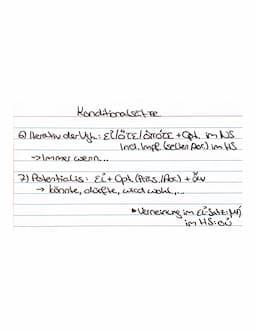 Konditionalsätze
6) Iterativ der Vgh.: εἰ/ὅτε/ὁπότε + Opt. im NS
Ind. Impf. (selten Aor.) im HS
→ Immer wenn...
7) Potentialis: εἰ + Opt. (Präs./Aor.) + ἄν
→ könnte, dürfte, wird wohl,...
Verneinung im εἰ-Satz: μή
im HS: οὐ